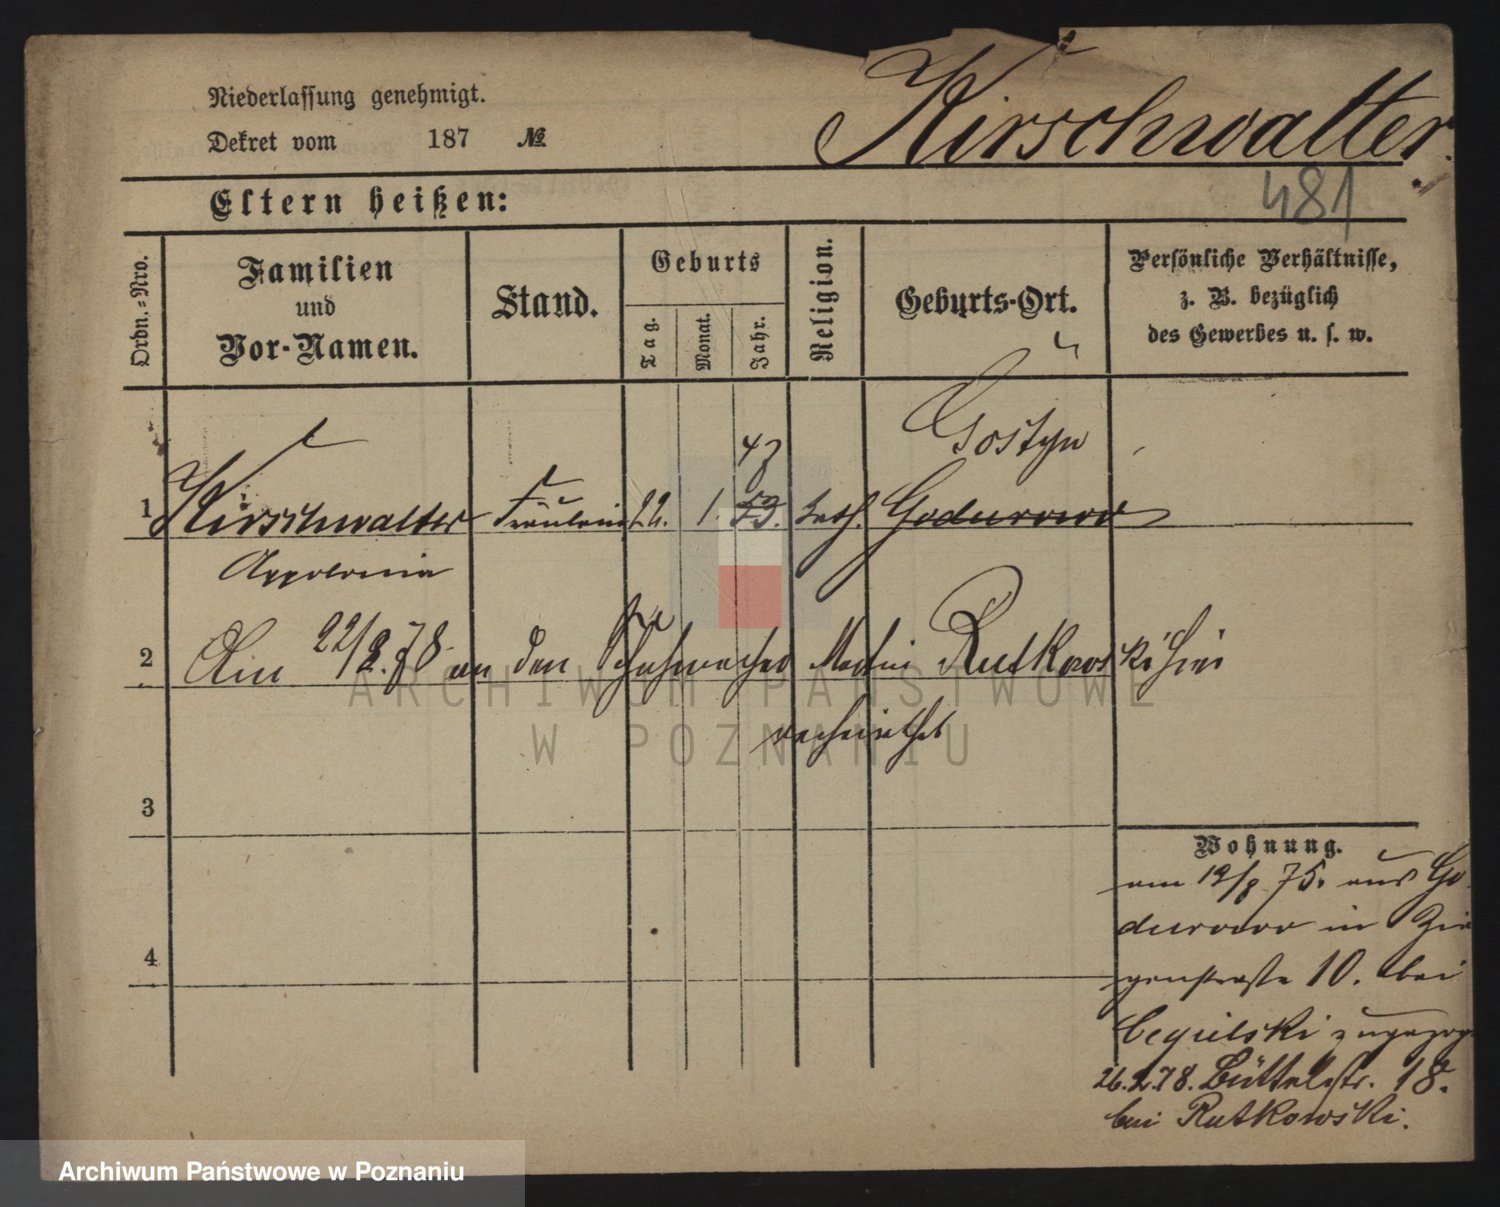 Niederlassung genehmigt.
Dekret vom 187 №
Kirschwalter.
481
Eltern heißen:
Ordn.-Nro.
Familien
und
Vor-Namen.
Stand.
Geburts
Tag.
Monat.
Jahr.
Religion.
Geburts-Ort.
Persönliche Verhältnisse,
z. B. bezüglich
des Gewerbes u. s. w.
Gostyn
1 Kirschwalter Fräulein 22. 1. 53. kath. Godurowo
Appolonia
2 Am 22/2.78 an den Schuhmacher Martin Rutkowski hier
verheirathet
3
4
Wohnung.
am 12/8 75. aus Go-
durowo in Zie-
genstraße 10. bei
Cegielski zugezog.
26.2.78. Büttelstr. 18.
bei Rutkowski.
ARCHIWUM PAŃSTWOWE
W POZNANIU
Archiwum Państwowe w Poznaniu